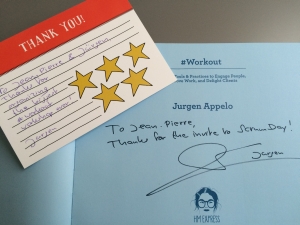 THANK YOU!
To Jean-Pierre & Jurgen
Thanks for
the
workshop
Jurgen
#Workout
Tools & Practices to Engage People,
Work, and Delight Clients
Jurgen Appelo
To Jean-Pierre,
Thanks for the invite to ScrumDay!
Jurgen
HM EXPRESS